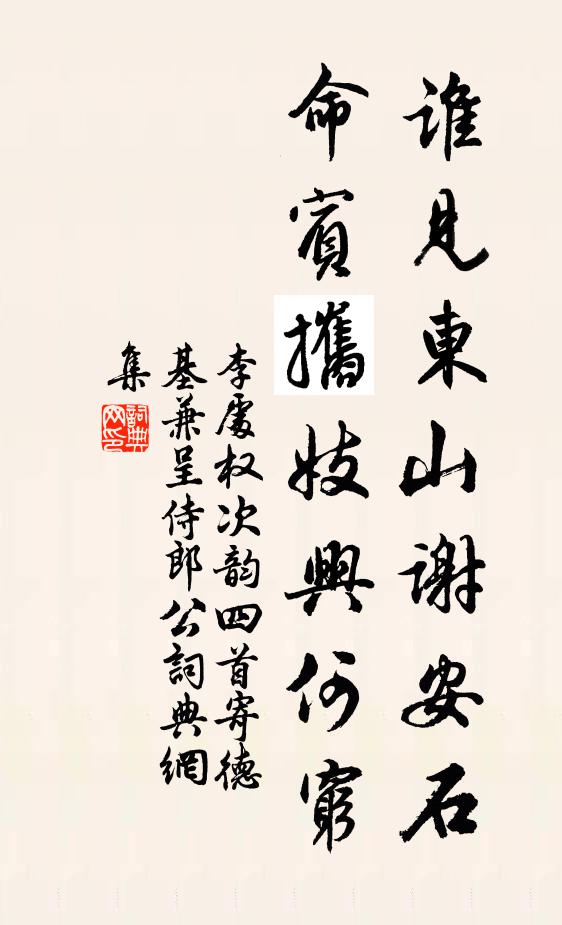 誰見東山謝安石
命賓攜妓興何窮
李處权次韵四首寄德
基兼呈侍郎公詞典網
集
詞典
网印